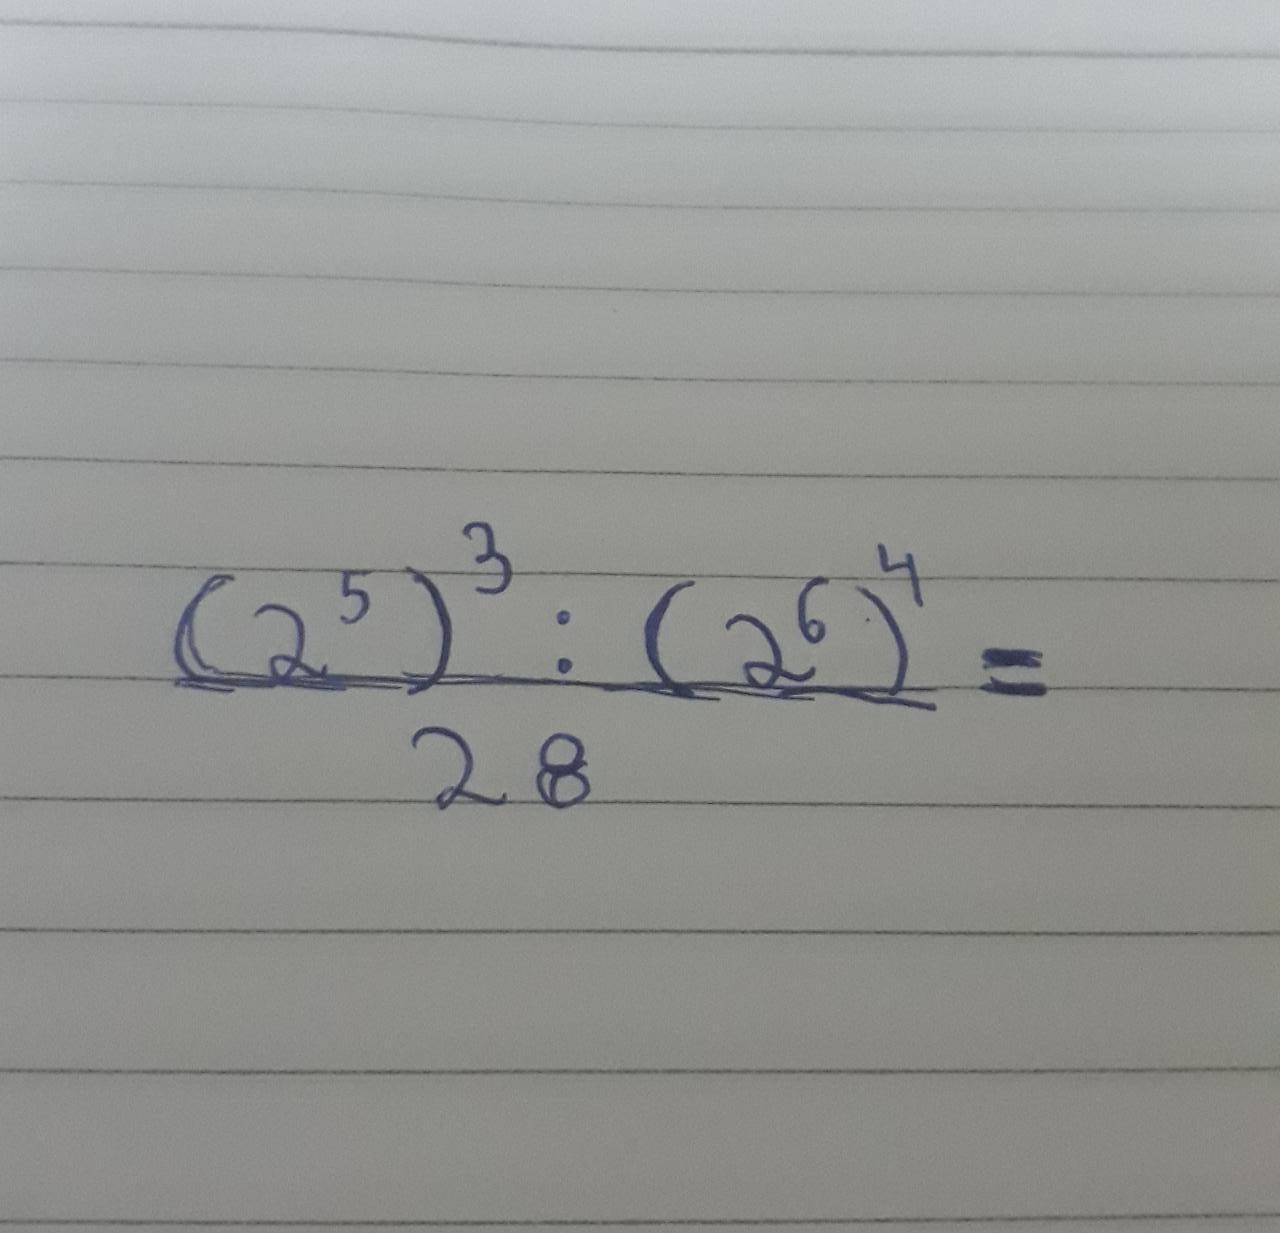 (2⁵)³ : (2⁶)⁴ =
28